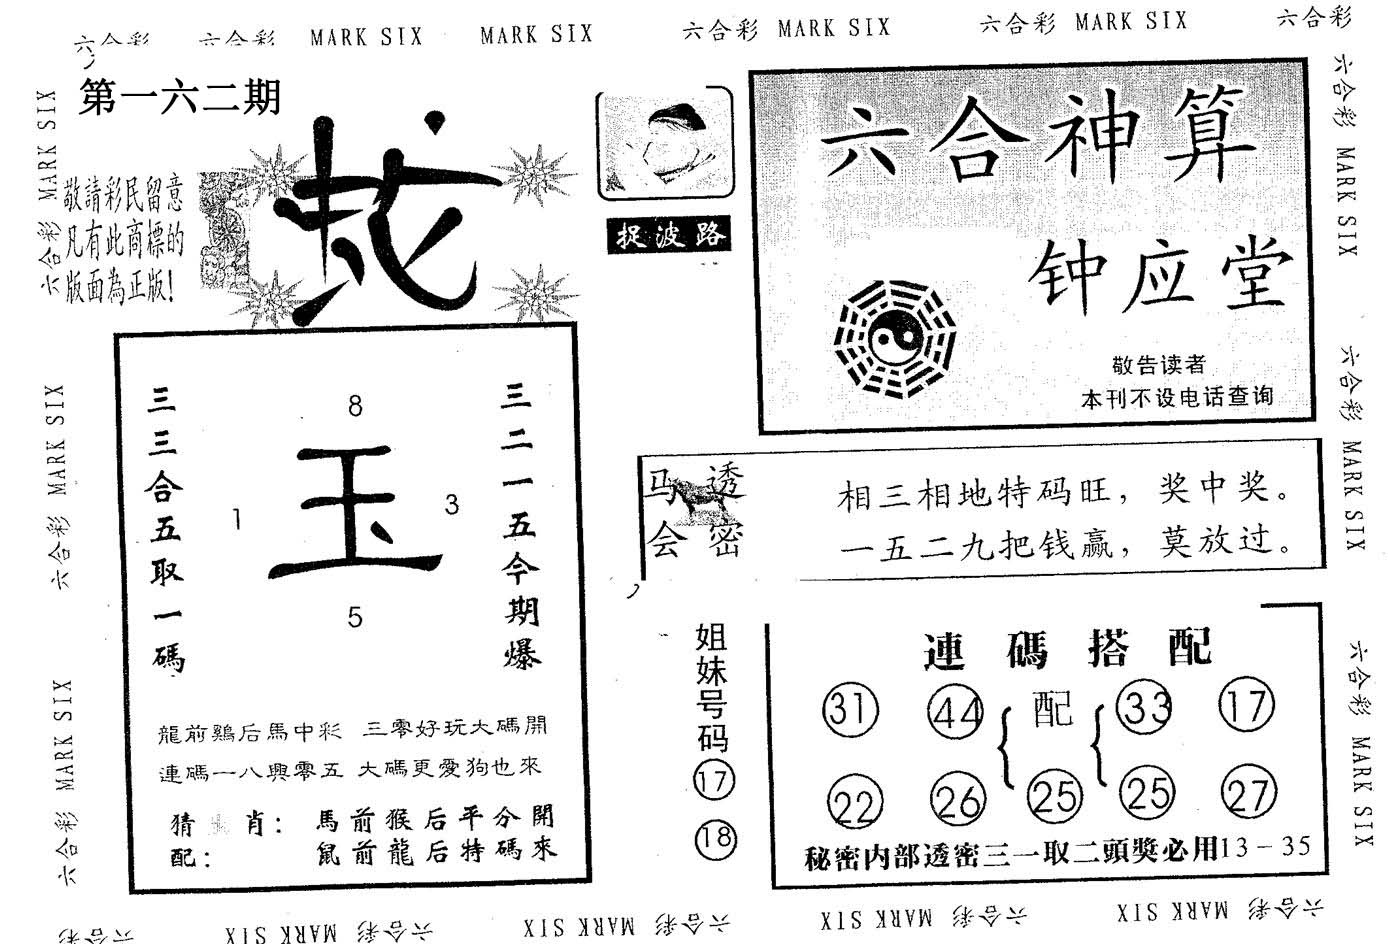 六合彩 六合彩 MARK SIX MARK SIX 六合彩 MARK SIX 六合彩 MARK SIX 六合彩
第一六二期
敬請彩民留意
凡有此商標的
版面為正版!
六合彩 MARK SIX
六合彩 MARK SIX
六合彩 MARK SIX
捉波路
六合神算
钟应堂
敬告读者
本刊不设电话查询
六合彩 MARK SIX
六合彩 MARK SIX
六合彩 MARK SIX
三三合五取一碼
8
1
玉
3
5
三二一五今期爆
龍前鷄后馬中彩 三零好玩大碼開
連碼一八興零五 大碼更愛狗也來
猜 肖: 馬前猴后平分開
配: 鼠前龍后特碼來
马会透密
相三相地特码旺,奖中奖。
一五二九把钱赢,莫放过。
姐妹号码
17
18
連碼搭配
31 44 { 配 { 33 17
22 26 25 25 27
秘密内部透密三一取二頭獎必用13-35
六合彩 MARK SIX 六合彩 MARK SIX 六合彩 MARK SIX 六合彩 MARK SIX 六合彩